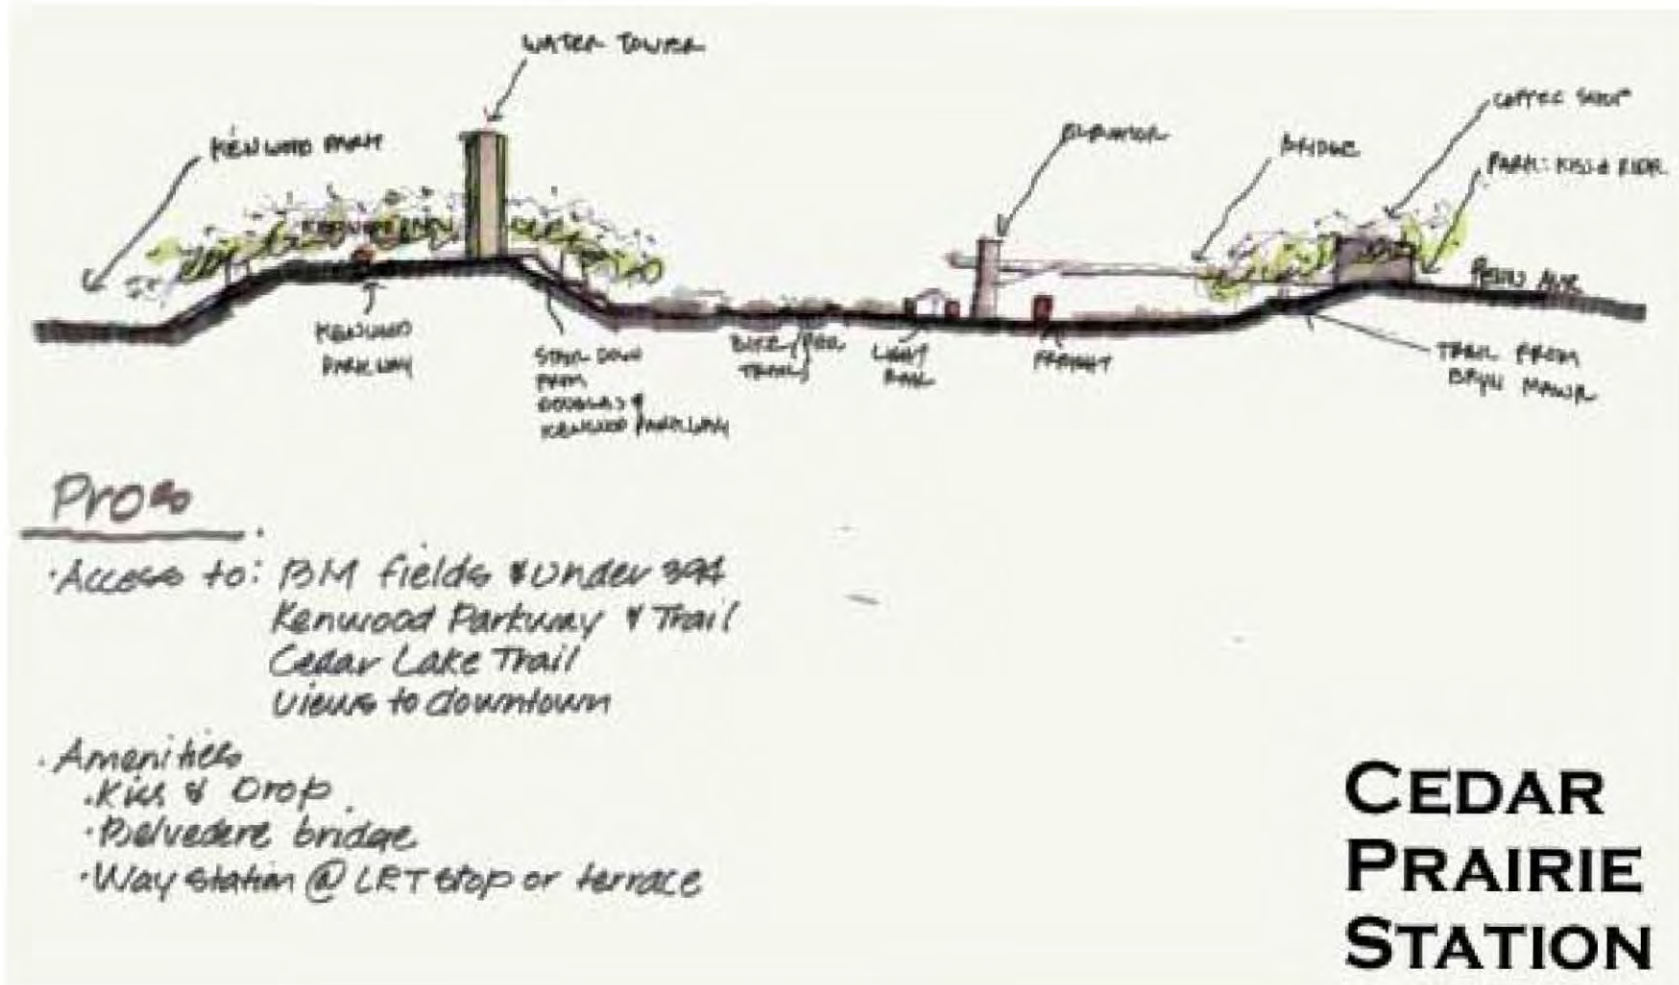 WATER TOWER
COFFEE SHOP
KENWOOD PARK
ELEVATOR
BRIDGE
PARK: KISS & RIDE
PENN AVE
KENWOOD
PARKWAY
STAIR DOWN
FROM
DOUGLAS &
KENWOOD PARKWAY
BIKE/PED
TRAILS
LIGHT
RAIL
FREIGHT
TRAIL FROM
BRYN MAWR
Pros
· Access to: BM fields & under 394
Kenwood Parkway & Trail
Cedar Lake Trail
views to downtown
· Amenities
· Kiss & Drop
· Belvedere bridge
· Way station @ LRT stop or terrace
CEDAR
PRAIRIE
STATION